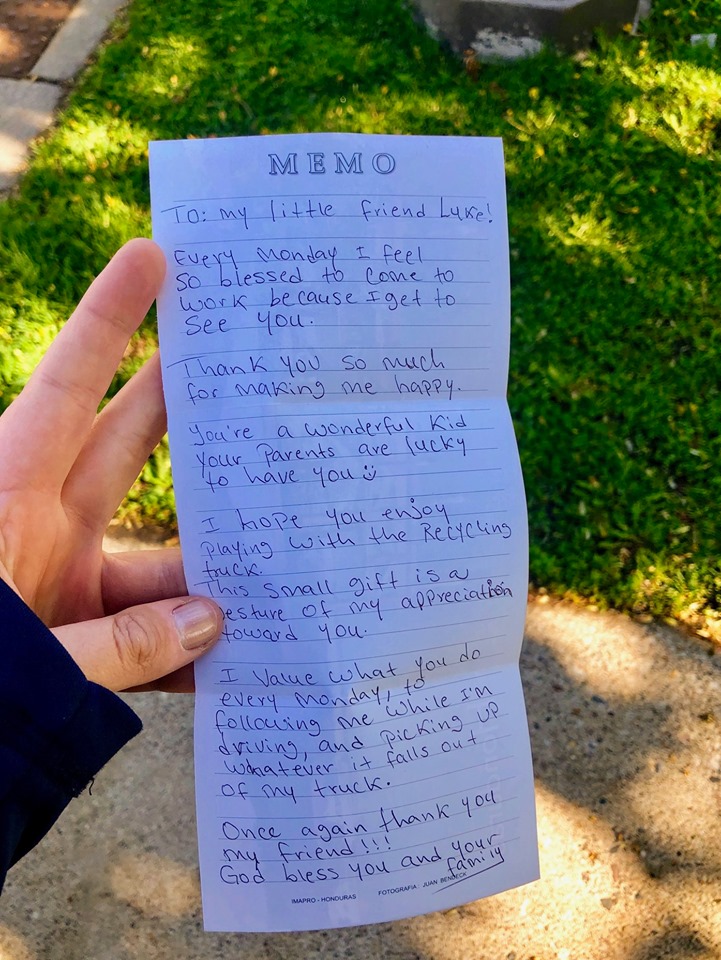 MEMO
To: my little friend Luke!
Every Monday I feel
so blessed to come to
work because I get to
see you.
Thank you so much
for making me happy.
You're a wonderful kid
your parents are lucky
to have you
I hope you enjoy
playing with the Recycling
truck.
This small gift is a
esture of my appreciation
toward you.
I value what you do
every monday, to
following me while I'm
driving, and picking up
whatever it falls out
of my truck.
Once again thank you
my friend!!!
God bless you and your
family
IMAPRO - HONDURAS FOTOGRAFIA: JUAN BENDECK